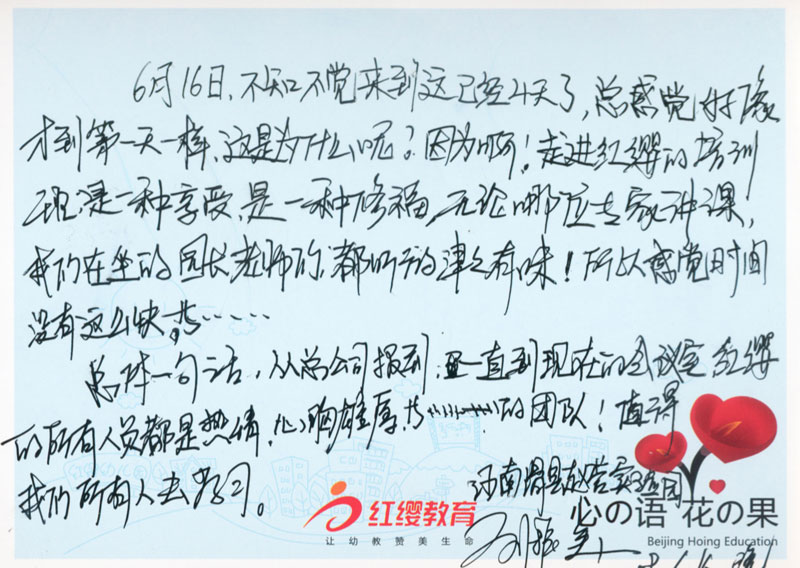 6月16日,不知不觉来到这已经4天了,总感觉好像
才到第一天一样,这是为什么呢?因为啊!走进红缨的培训
班,是一种享受,是一种修福,无论哪位专家讲课,
我们在坐的园长老师们,都听的津津有味!所以感觉时间
没有这么快。……
总体一句话,从总公司报到,一直到现在的会议室红缨
的所有人员都是热情,心胸雄厚……的团队!值得
我们所有人去学习。
河南滑县
红缨教育
让幼教赞美生命
心の语 花の果
Beijing Hoing Education